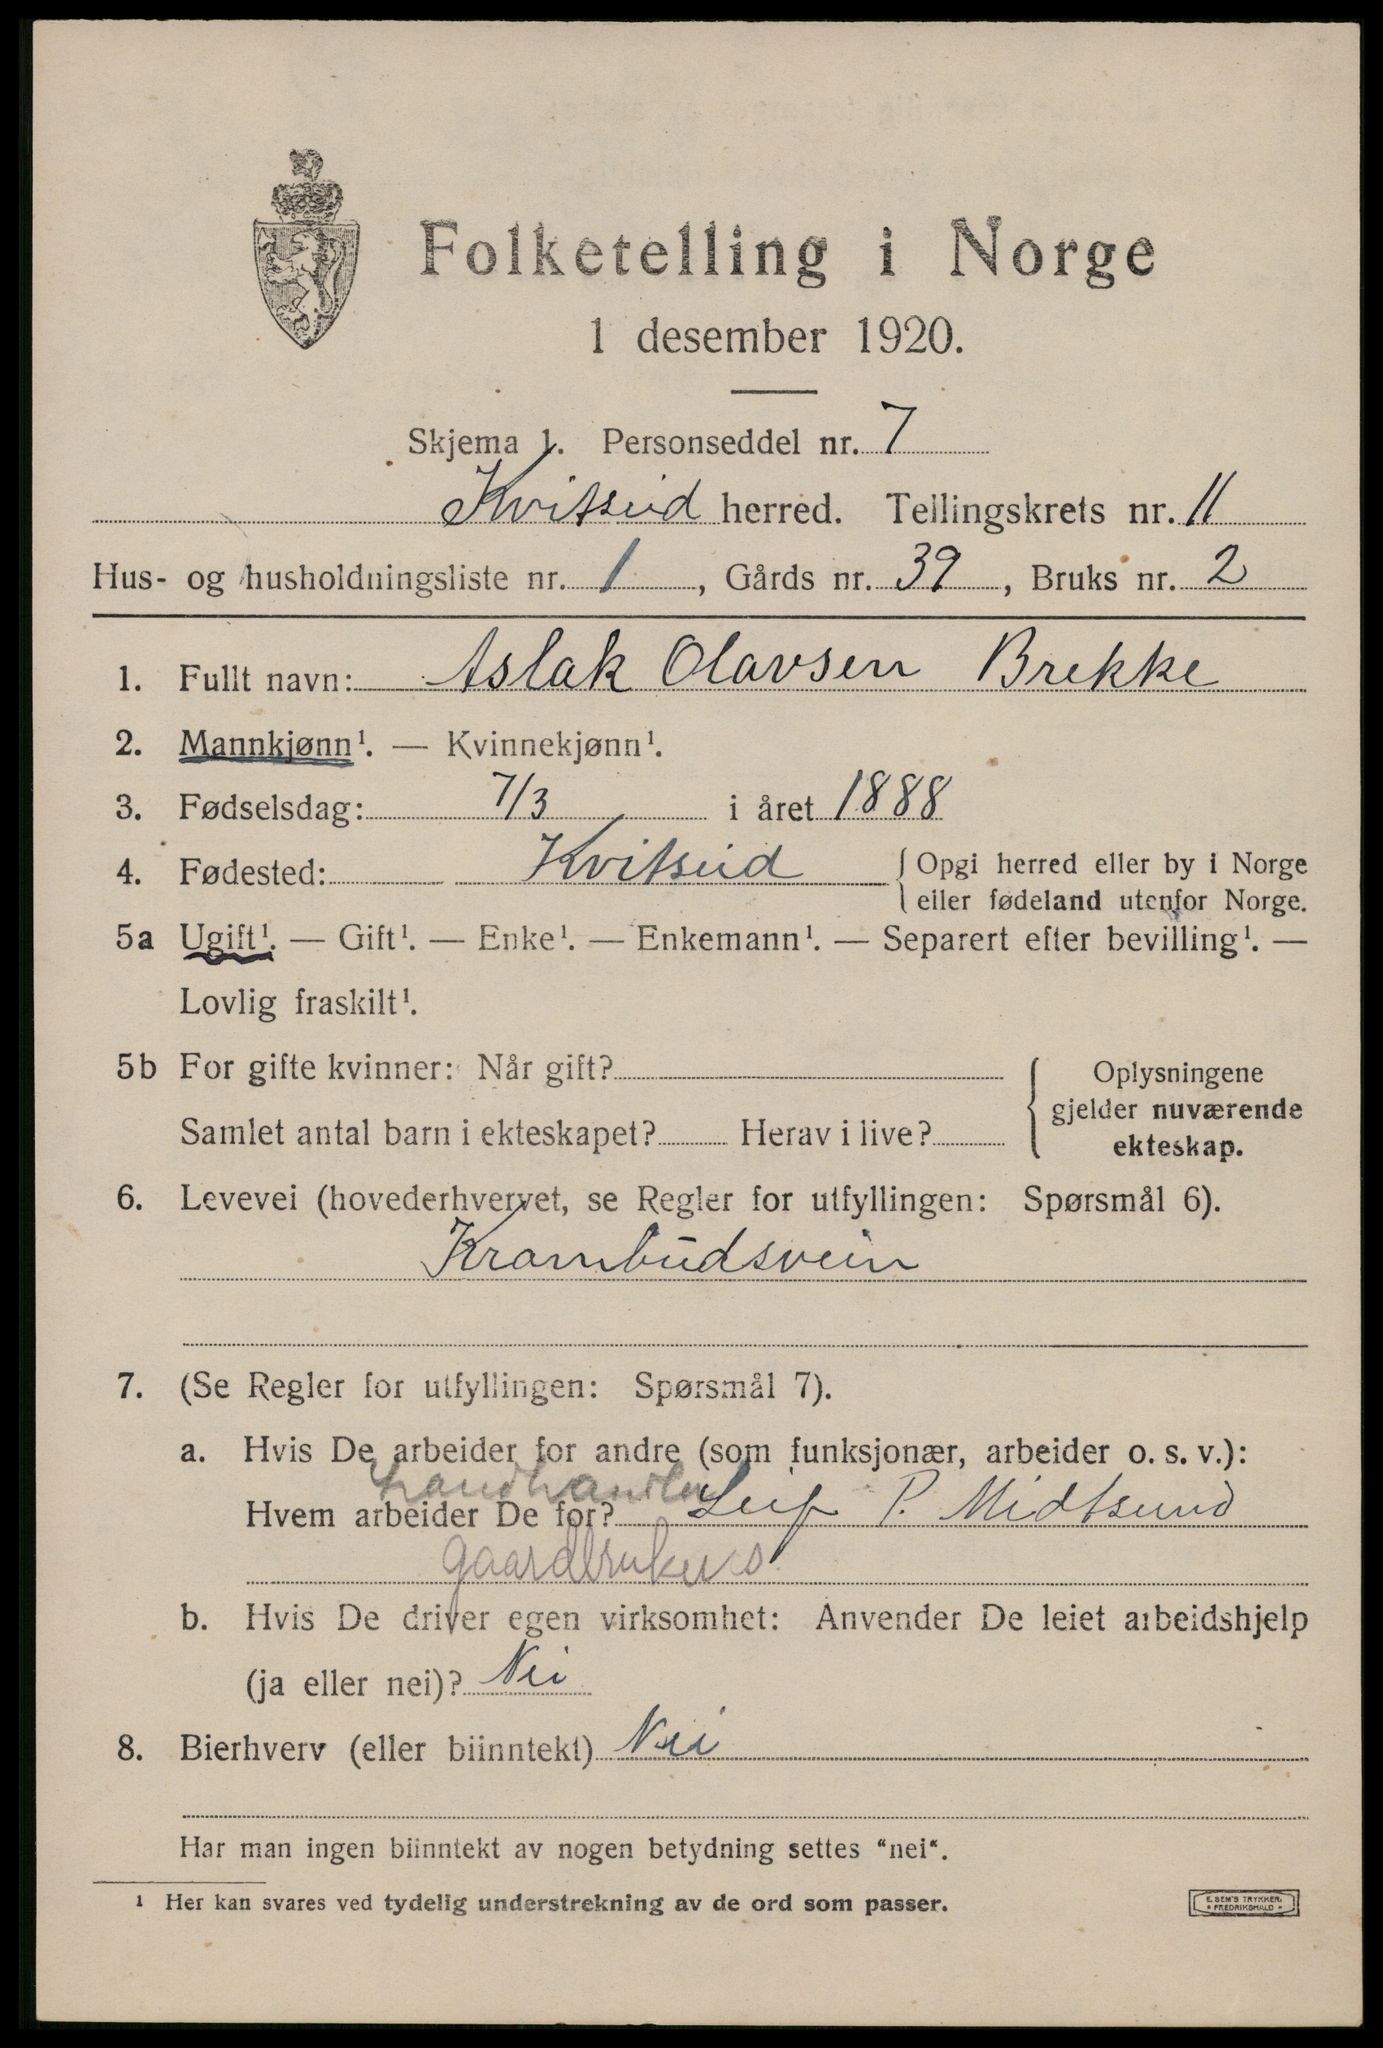 Folketelling i Norge
1 desember 1920.
Skjema 1. Personseddel nr. 7
Kvitseid herred. Tellingskrets nr. 11
Hus- og husholdningsliste nr. 1, Gårds nr. 39, Bruks nr. 2
1. Fullt navn: Aslak Olavsen Brekke
2. Mannkjønn¹. — Kvinnekjønn¹.
3. Fødselsdag: 7/3 i året 1888
4. Fødested: Kvitseid { Opgi herred eller by i Norge
eller fødeland utenfor Norge.
5a Ugift¹. — Gift¹. — Enke¹. — Enkemann¹. — Separert efter bevilling¹. —
Lovlig fraskilt¹.
5b For gifte kvinner: Når gift? { Oplysningene
gjelder nuværende
Samlet antal barn i ekteskapet? Herav i live?
ekteskap.
6. Levevei (hovederhvervet, se Regler for utfyllingen: Spørsmål 6).
Krambudsvein
7. (Se Regler for utfyllingen: Spørsmål 7).
a. Hvis De arbeider for andre (som funksjonær, arbeider o. s. v.):
Landhandler
Hvem arbeider De for? Leif P. Midtsund
gaardbruker
b. Hvis De driver egen virksomhet: Anvender De leiet arbeidshjelp
(ja eller nei)? Nei
8. Bierhverv (eller biinntekt) Nei
Har man ingen biinntekt av nogen betydning settes "nei".
¹ Her kan svares ved tydelig understrekning av de ord som passer.
E. SEM'S TRYKKERI
* FREDRIKSHALD *